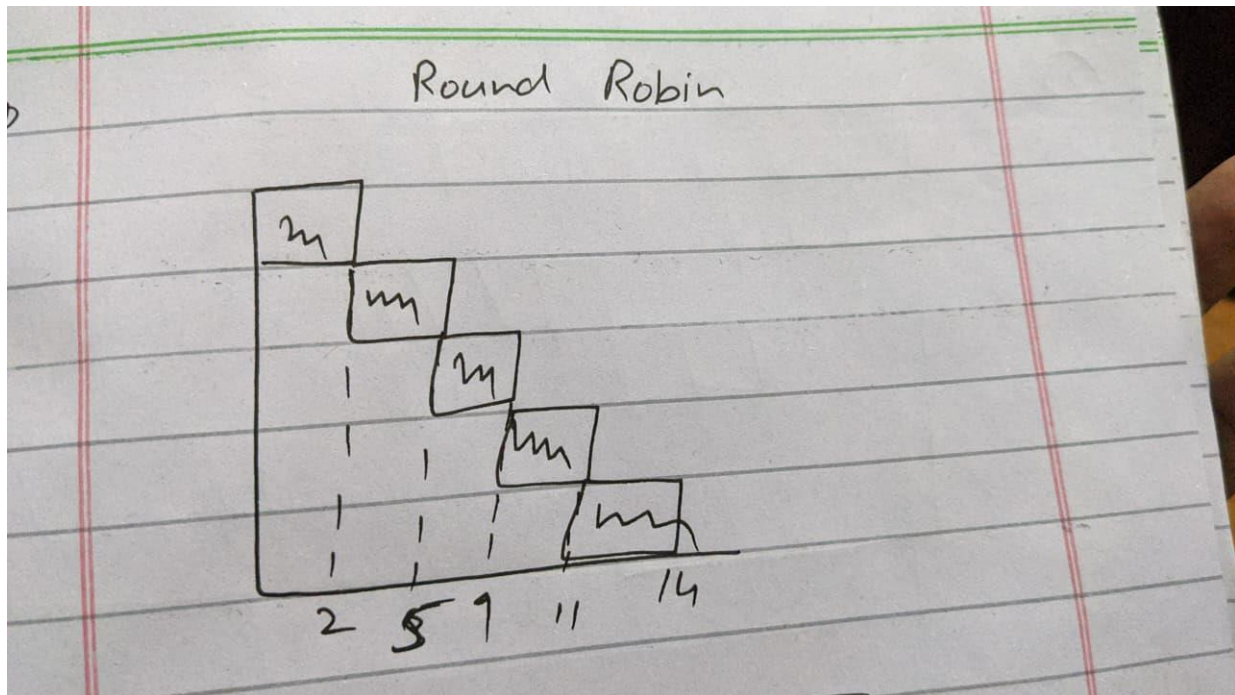 Round Robin
2 5 9 11 14